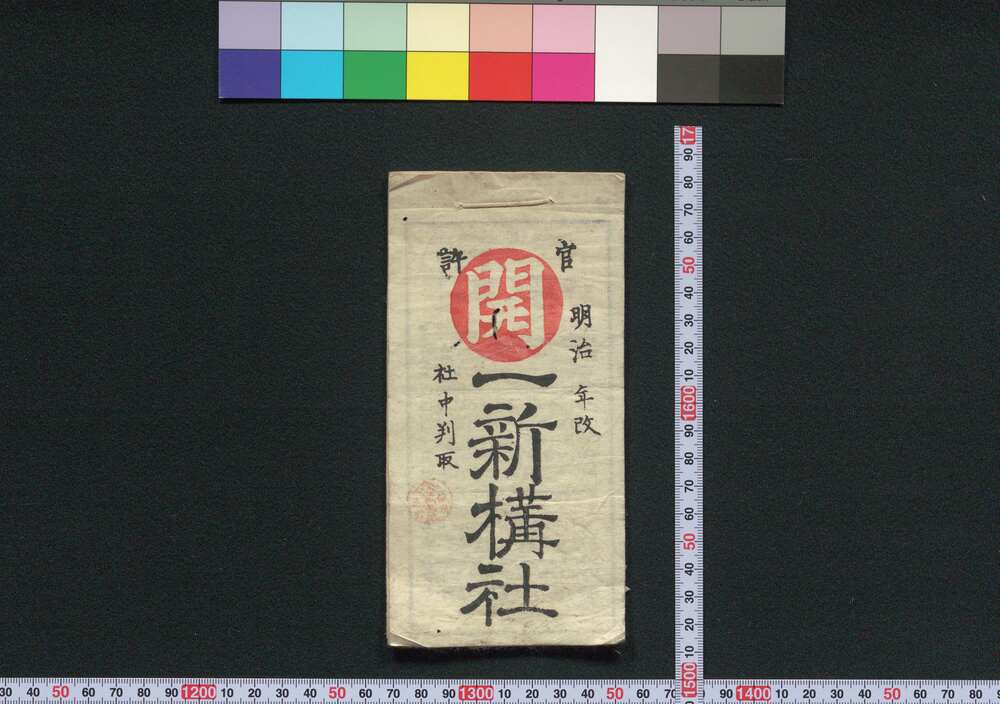 官許
開
明治 年改
一新構社
社中判取
90
80
70
60
50
40
30
20
10
1600
90
80
70
60
50
40
30
20
1500
30 40 50 60 70 80 90 1200 10 20 30 40 50 60 70 80 90 1300 10 20 30 40 50 60 70 90 1400 10 20 30 40 50 60 70 80